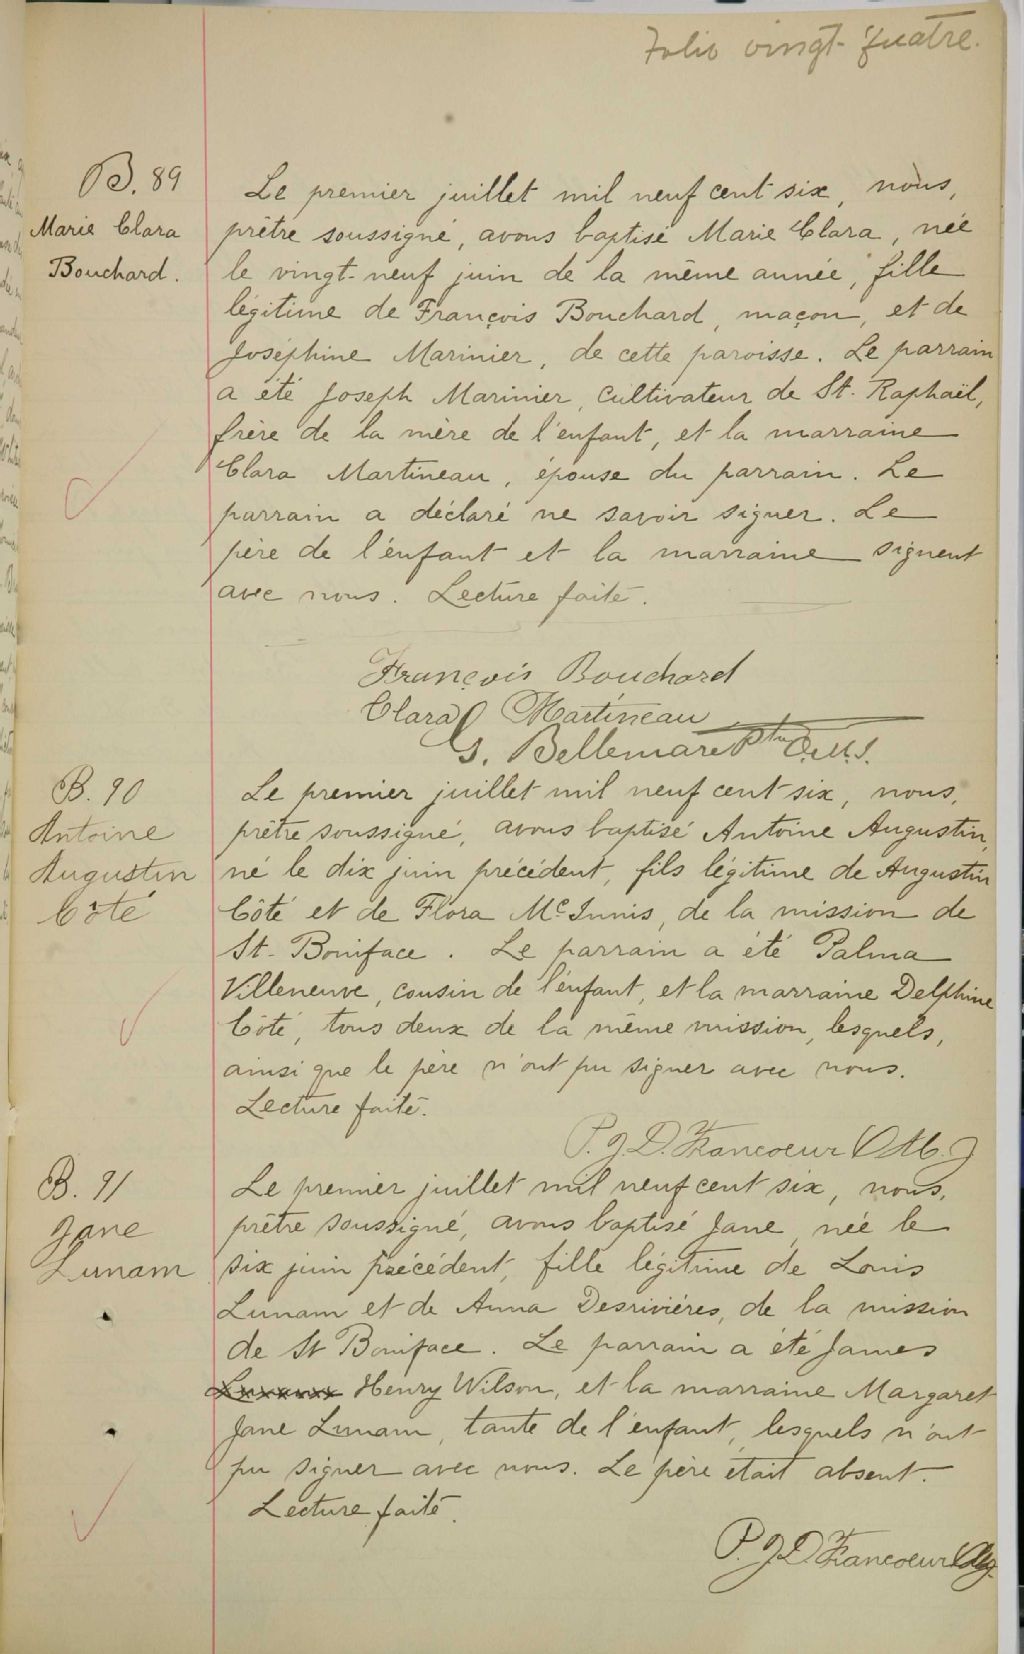 Folio vingt-quatre.
B. 89
Marie Clara
Bouchard.
Le premier juillet mil neuf cent six, nous,
prêtre soussigné, avons baptisé Marie Clara, née
le vingt-neuf juin de la même année, fille
légitime de François Bouchard, maçon, et de
Joséphine Marinier, de cette paroisse. Le parrain
a été Joseph Marinier, cultivateur de St. Raphaël,
frère de la mère de l'enfant, et la marraine
Clara Martineau, épouse du parrain. Le
parrain a déclaré ne savoir signer. Le
père de l'enfant et la marraine signent
avec nous. Lecture faite.
François Bouchard
Clara Martineau
G. Bellemare Ptre O.M.I.
B. 90
Antoine
Augustin
Côté
Le premier juillet mil neuf cent six, nous,
prêtre soussigné, avons baptisé Antoine Augustin,
né le dix juin précédent, fils légitime de Augustin
Côté et de Flora McInnis, de la mission de
St-Boniface. Le parrain a été Palma
Villeneuve, cousin de l'enfant, et la marraine Delphine
Côté, tous deux de la même mission, lesquels,
ainsi que le père n'ont pu signer avec nous.
Lecture faite.
P.J.D. Francoeur O.M.I.
B. 91
Jane
Lunam
Le premier juillet mil neuf cent six, nous,
prêtre soussigné, avons baptisé Jane, née le
six juin précédent, fille légitime de Louis
Lunam et de Anna Desrivières, de la mission
de St Boniface. Le parrain a été James
Henry Wilson, et la marraine Margaret
Jane Lunam, tante de l'enfant, lesquels n'ont
pu signer avec nous. Le père était absent.
Lecture faite.
P.J.D. Francoeur